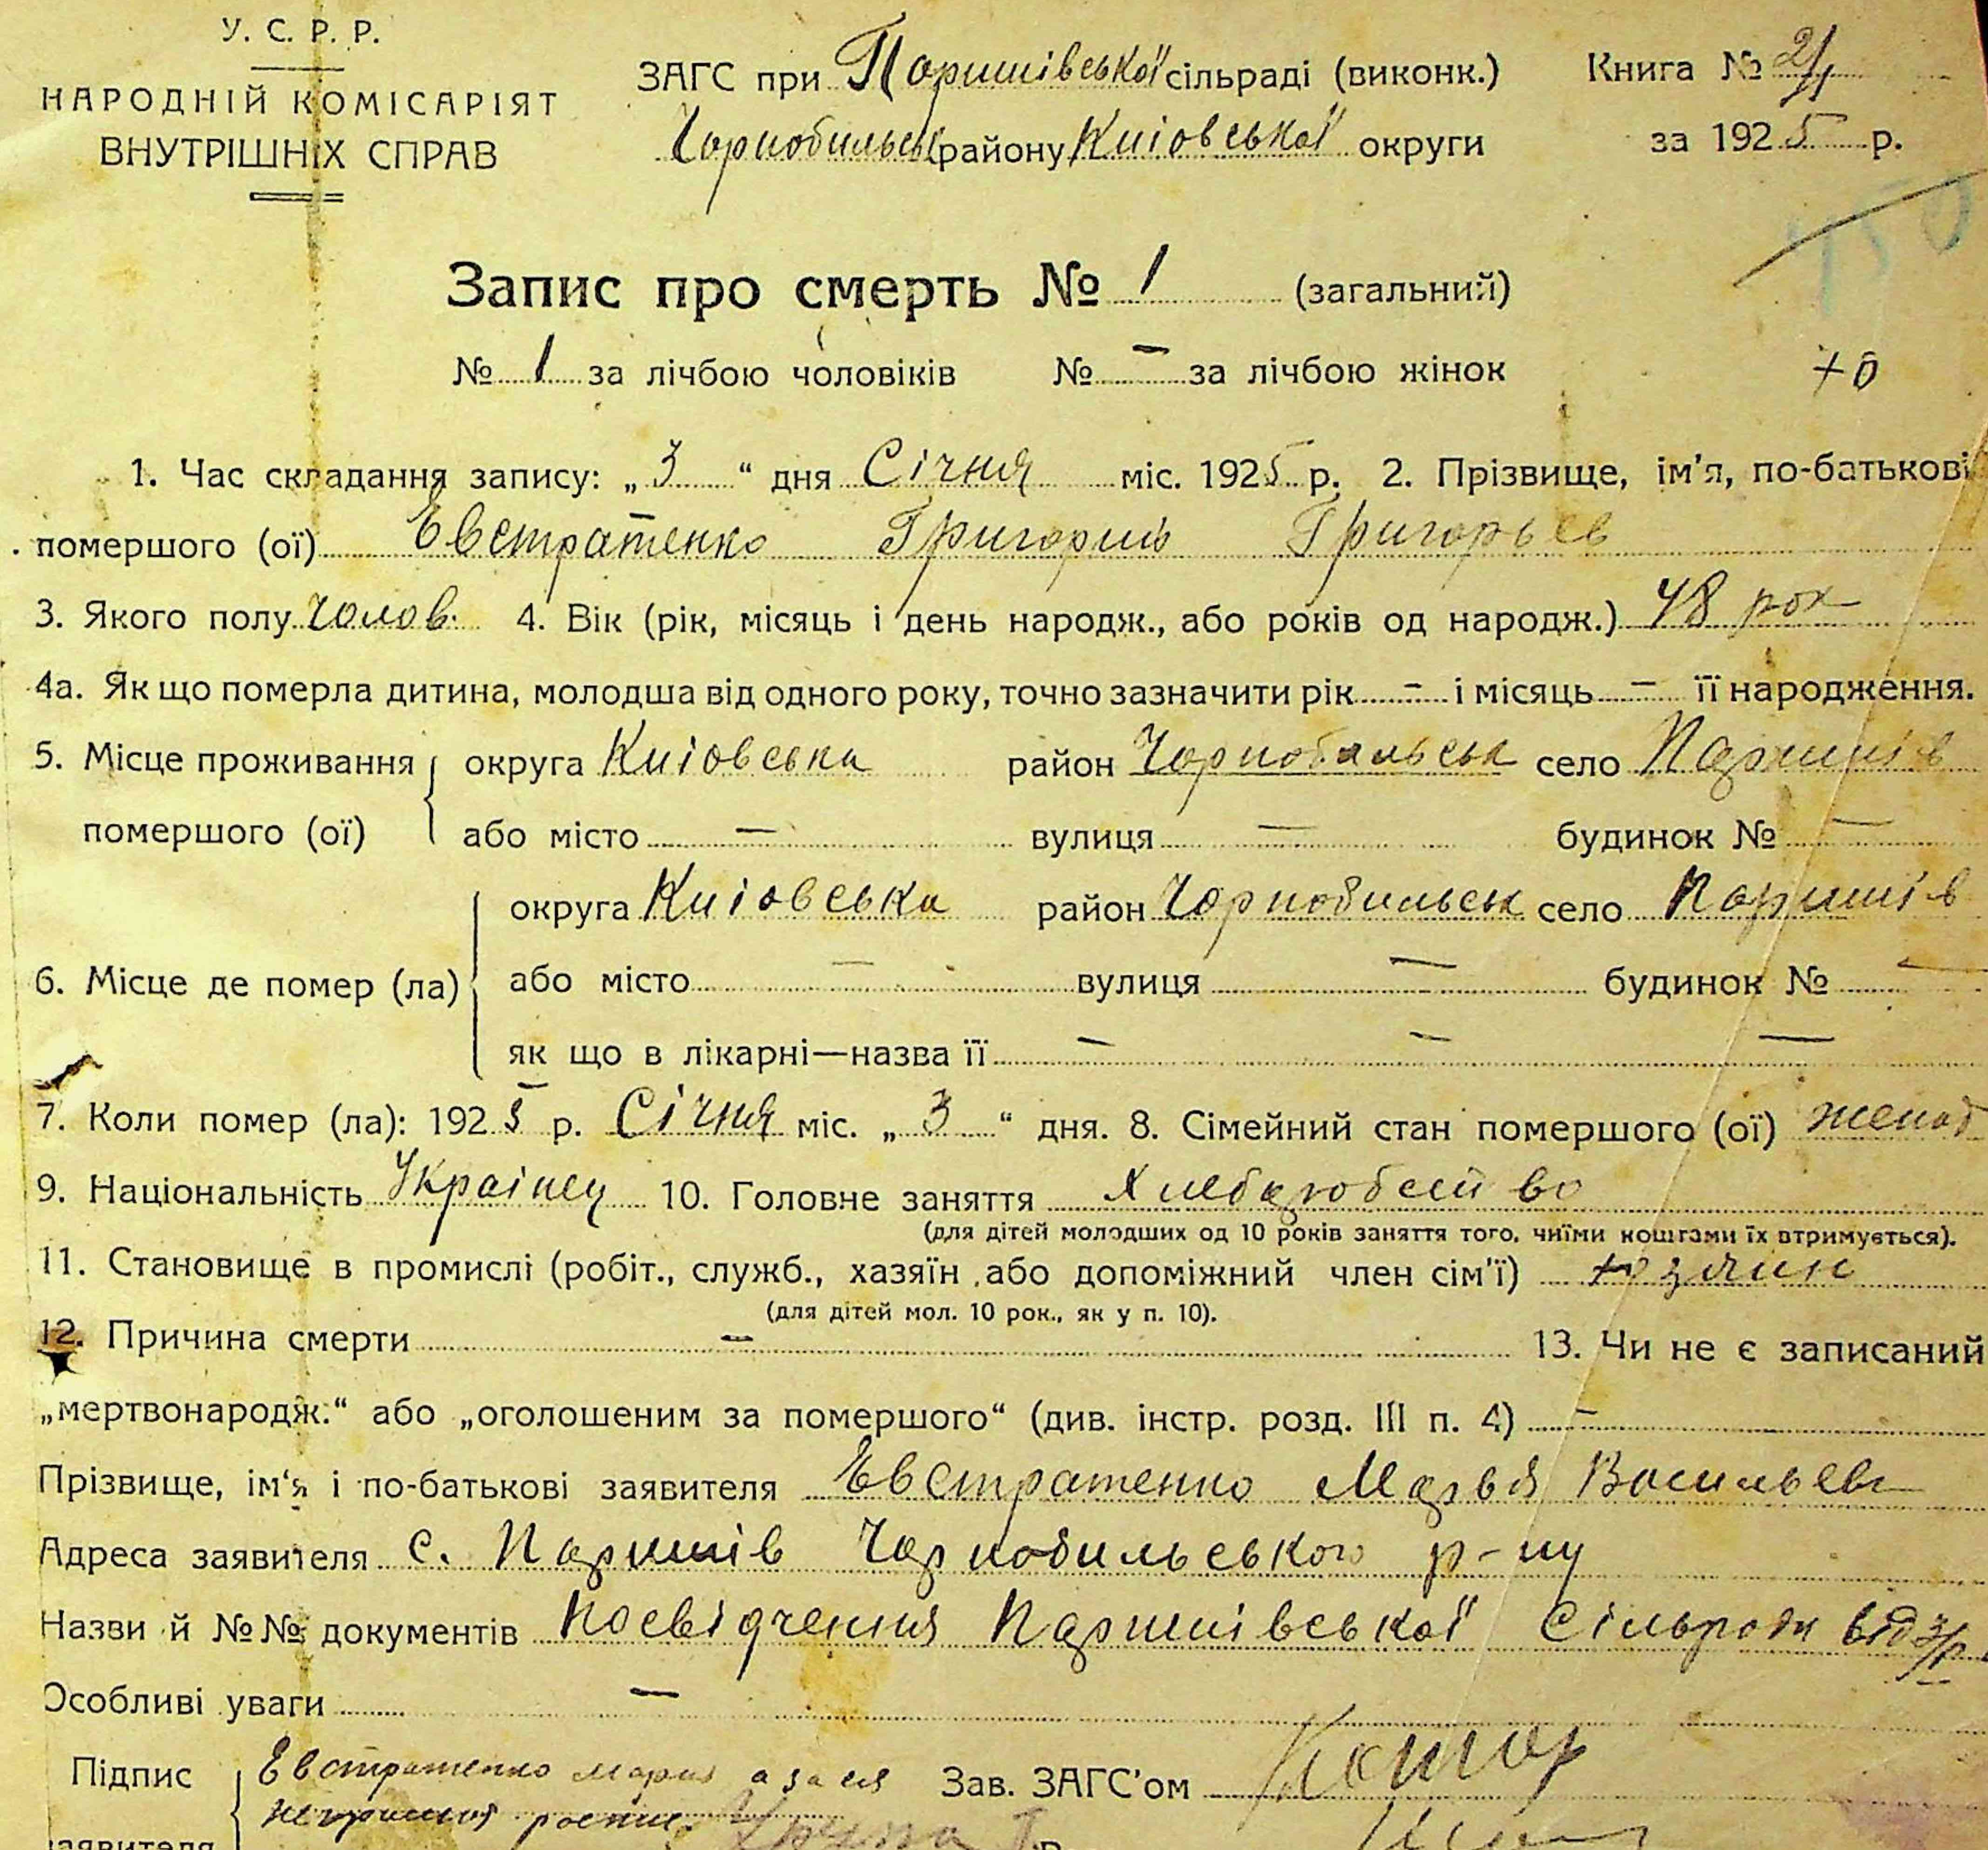 У. С. Р. Р.
НАРОДНІЙ КОМІСАРІЯТ
ВНУТРІШНІХ СПРАВ
ЗАГС при Паришівської сільраді (виконк.)
Чорнобильськ району Киівської округи
Книга № 2/1
за 1925 р.
Запис про смерть № 1 (загальний)
№ 1 за лічбою чоловіків № — за лічбою жінок
+0
1. Час складання запису: „3“ дня Січня міс. 1925 р. 2. Прізвище, ім'я, по-батькові
помершого (ої) Евстратенко Григорий Григорьев
3. Якого полу чолов. 4. Вік (рік, місяць і день народж., або років од народж.) 48 рок
4а. Як що померла дитина, молодша від одного року, точно зазначити рік — і місяць — її народження.
5. Місце проживання помершого (ої) округа Киівська район Чорнобильськ село Паришів
або місто — вулиця — будинок № —
6. Місце де помер (ла) округа Киівська район Чорнобильськ село Паришів
або місто — вулиця — будинок № —
як що в лікарні—назва її — — —
7. Коли помер (ла): 1925 р. Січня міс. „3“ дня. 8. Сімейний стан помершого (ої) женат
9. Національність Украінец 10. Головне заняття
(для дітей молодших од 10 років заняття того, чиїми коштами їх втримується).
11. Становище в промислі (робіт., служб., хазяїн або допоміжний член сім'ї) хозяин
(для дітей мол. 10 рок., як у п. 10).
12. Причина смерти — 13. Чи не є записаний
„мертвонародж.“ або „оголошеним за помершого“ (див. інстр. розд. III п. 4) —
Прізвище, ім'я і по-батькові заявителя Евстратенко Марья Васильев
Адреса заявителя с. Паришів Чорнобильського р-ну
Назви й №№ документів Посвідчення Паришівської Сільради від 3/I
Особливі уваги —
Підпис заявителя Евстратенко Мария а за ея
неграмот. роспис.
Зав. ЗАГС'ом